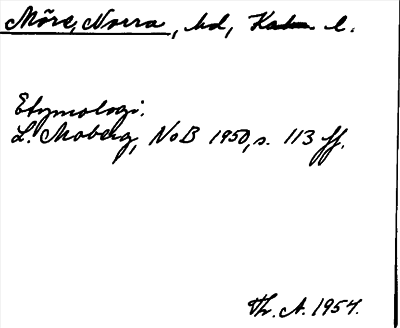 Möre, Norra, hd, Kalm l.
Etymologi.
L. Moberg, NoB 1950, s. 113 ff.
Th. A. 1954.